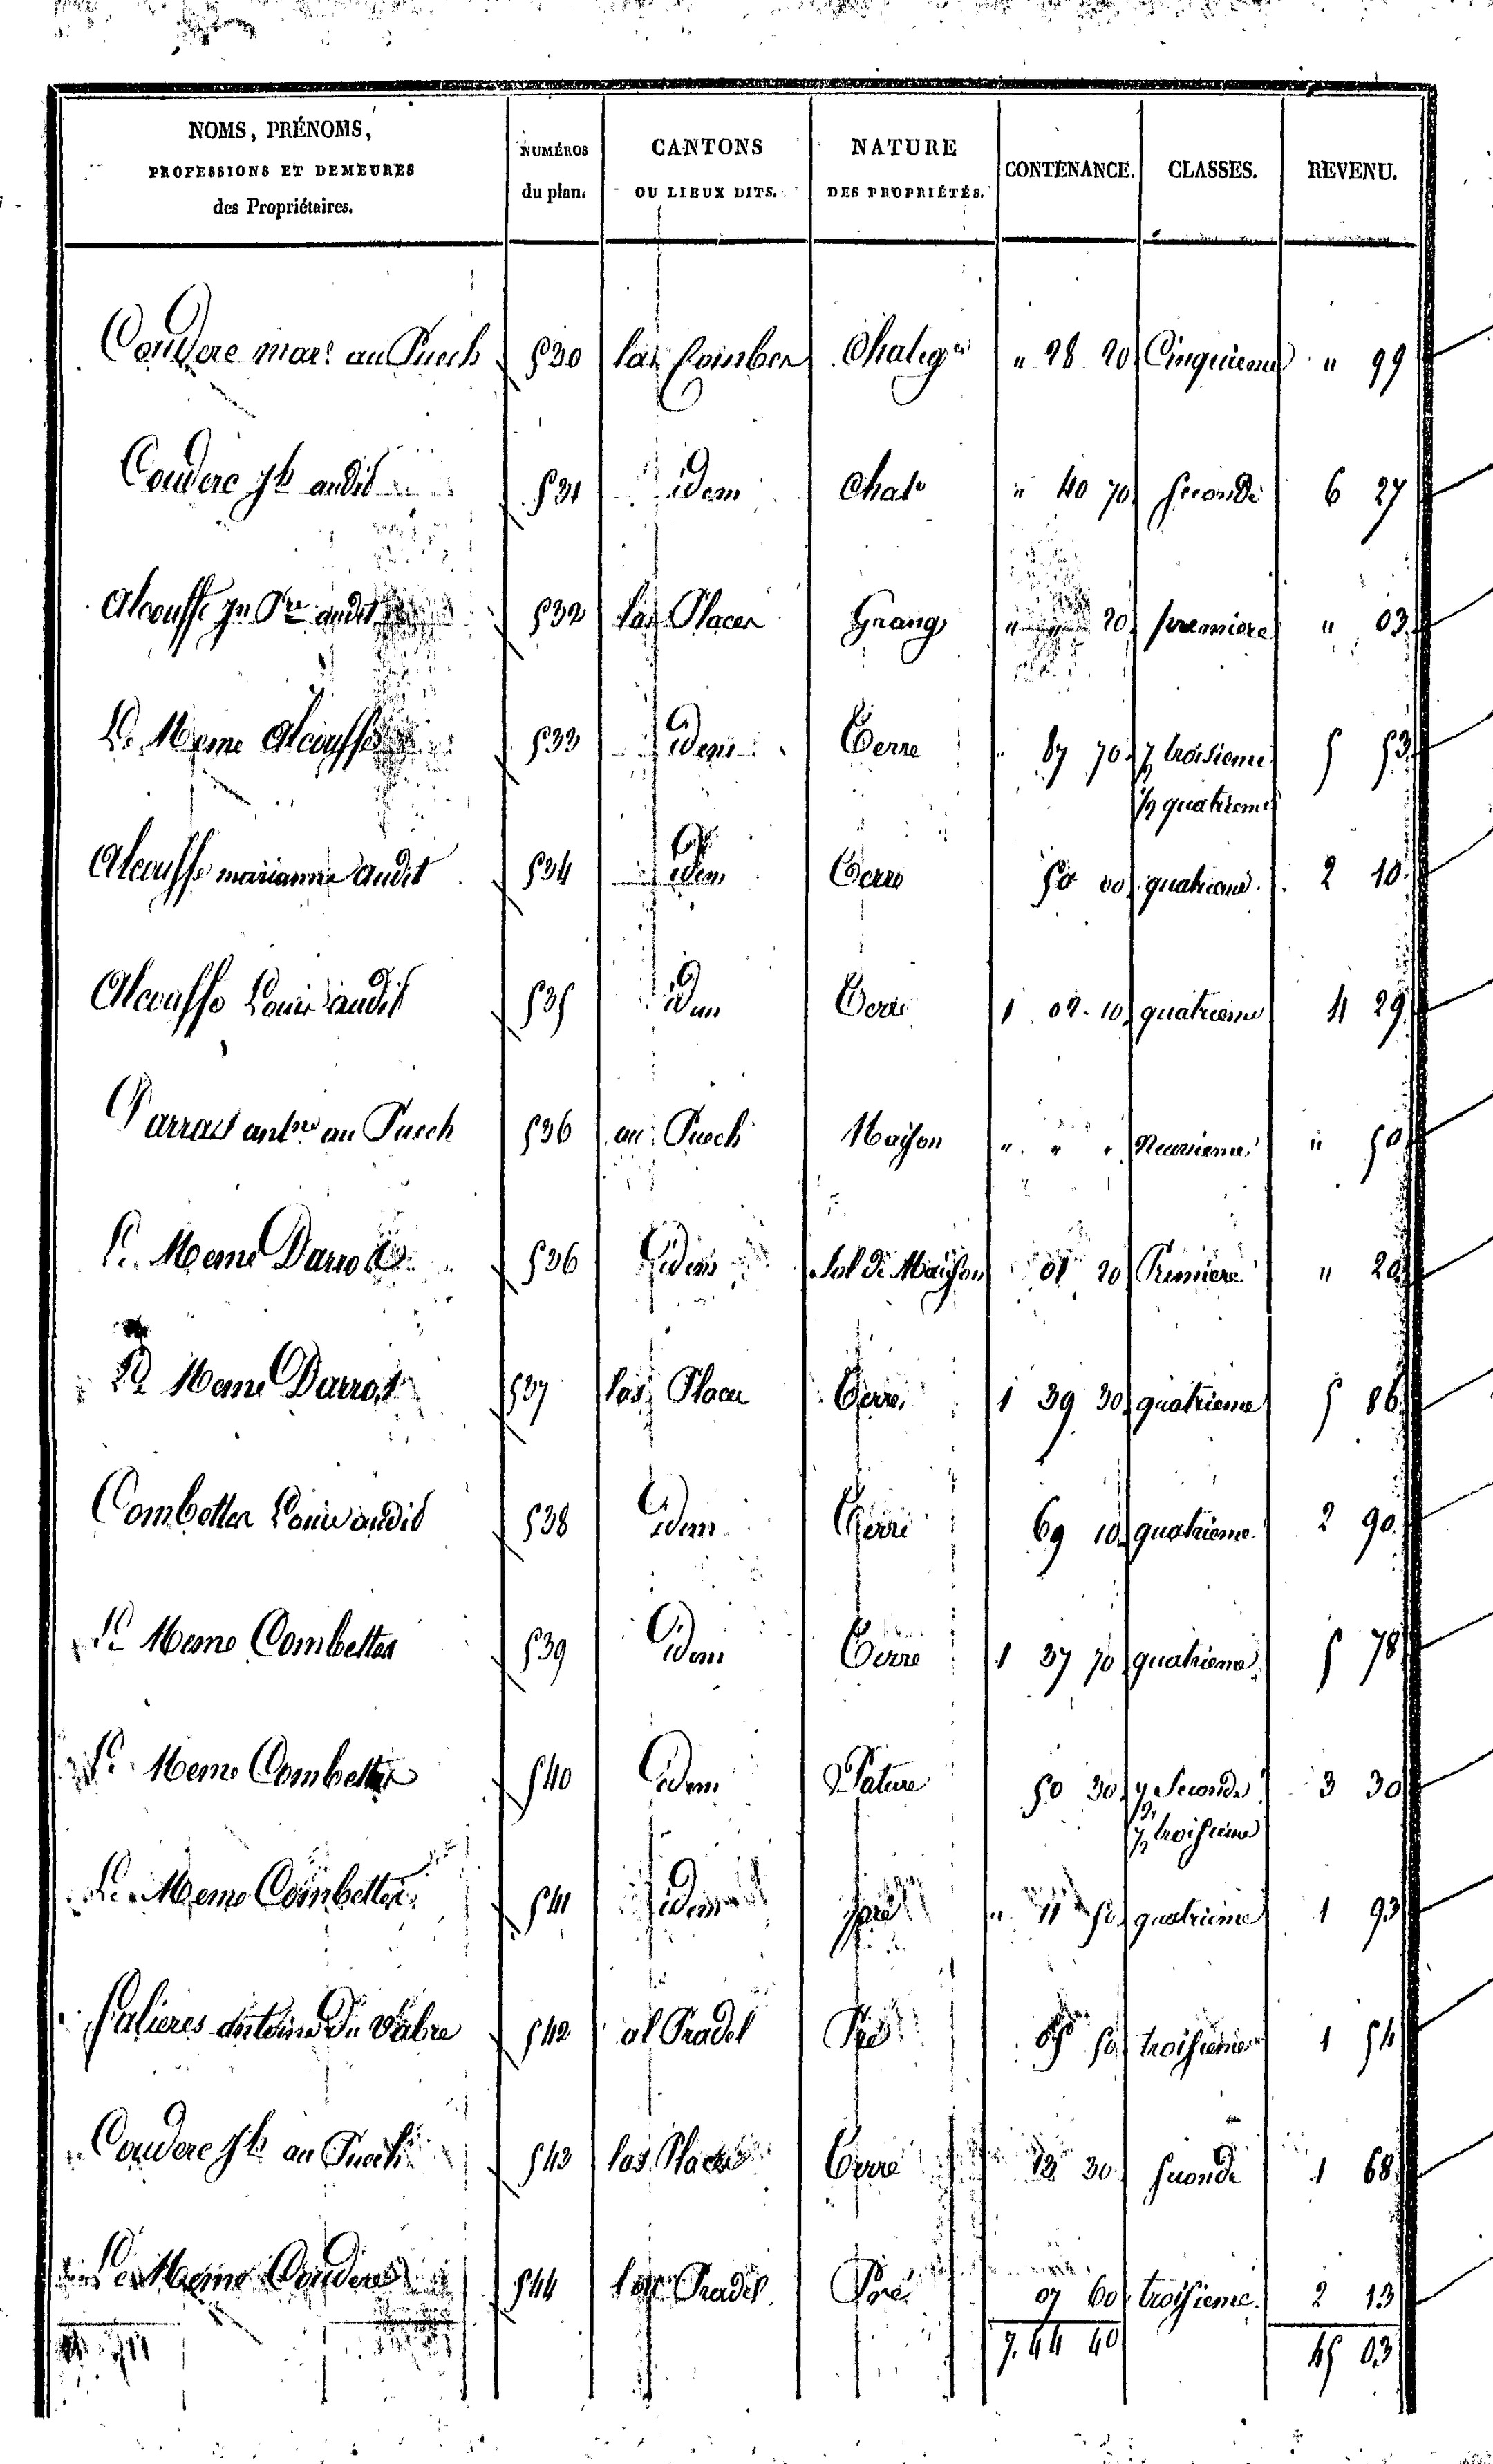 NOMS, PRÉNOMS, PROFESSIONS ET DEMEURES des Propriétaires. NUMÉROS du plan. CANTONS OU LIEUX DITS. NATURE DES PROPRIÉTÉS. CONTENANCE. CLASSES. REVENU.
Couderc au Puech 530 las Combes " 28 20 Cinquieme " 99
Couderc audit 531 idem " 40 70 seconde 6 27
Alcouffe audit 532 las Places Grange " " 20 premiere " 03
Le Meme Alcouffe 533 idem Terre 87 70 ½ troisieme 5 53
½ quatrieme
Alcouffe marianne audit 534 idem Terre 50 00 quatrieme 2 10
Alcouffe Louis audit 535 idem Terre 1 02 10 quatrieme 4 29
antne au Puech 536 au Puech Maison " " " Neuvieme " 50
Le Meme 536 idem Sol de Maison 01 20 Premiere " 20
Le Meme 537 las Places Terre 1 39 30 quatrieme 5 86
Combettes Louis audit 538 idem Terre 69 10 quatrieme 2 90
Le Meme Combettes 539 idem Terre 1 37 70 quatrieme 5 78
Le Meme Combettes 540 idem Pature 50 30 ½ Seconde 3 30
½ troisieme
Le Meme Combettes 541 idem pré " 11 50 quatrieme 1 93
Salieres antoine du Vabre 542 al Pradel Pré 05 50 troisieme 1 54
Couderc au Puech 543 las Places Terre 13 30 seconde 1 68
Le Meme Couderc 544 Pradel Pré 07 60 troisieme 2 13
7. 44 40 45 03